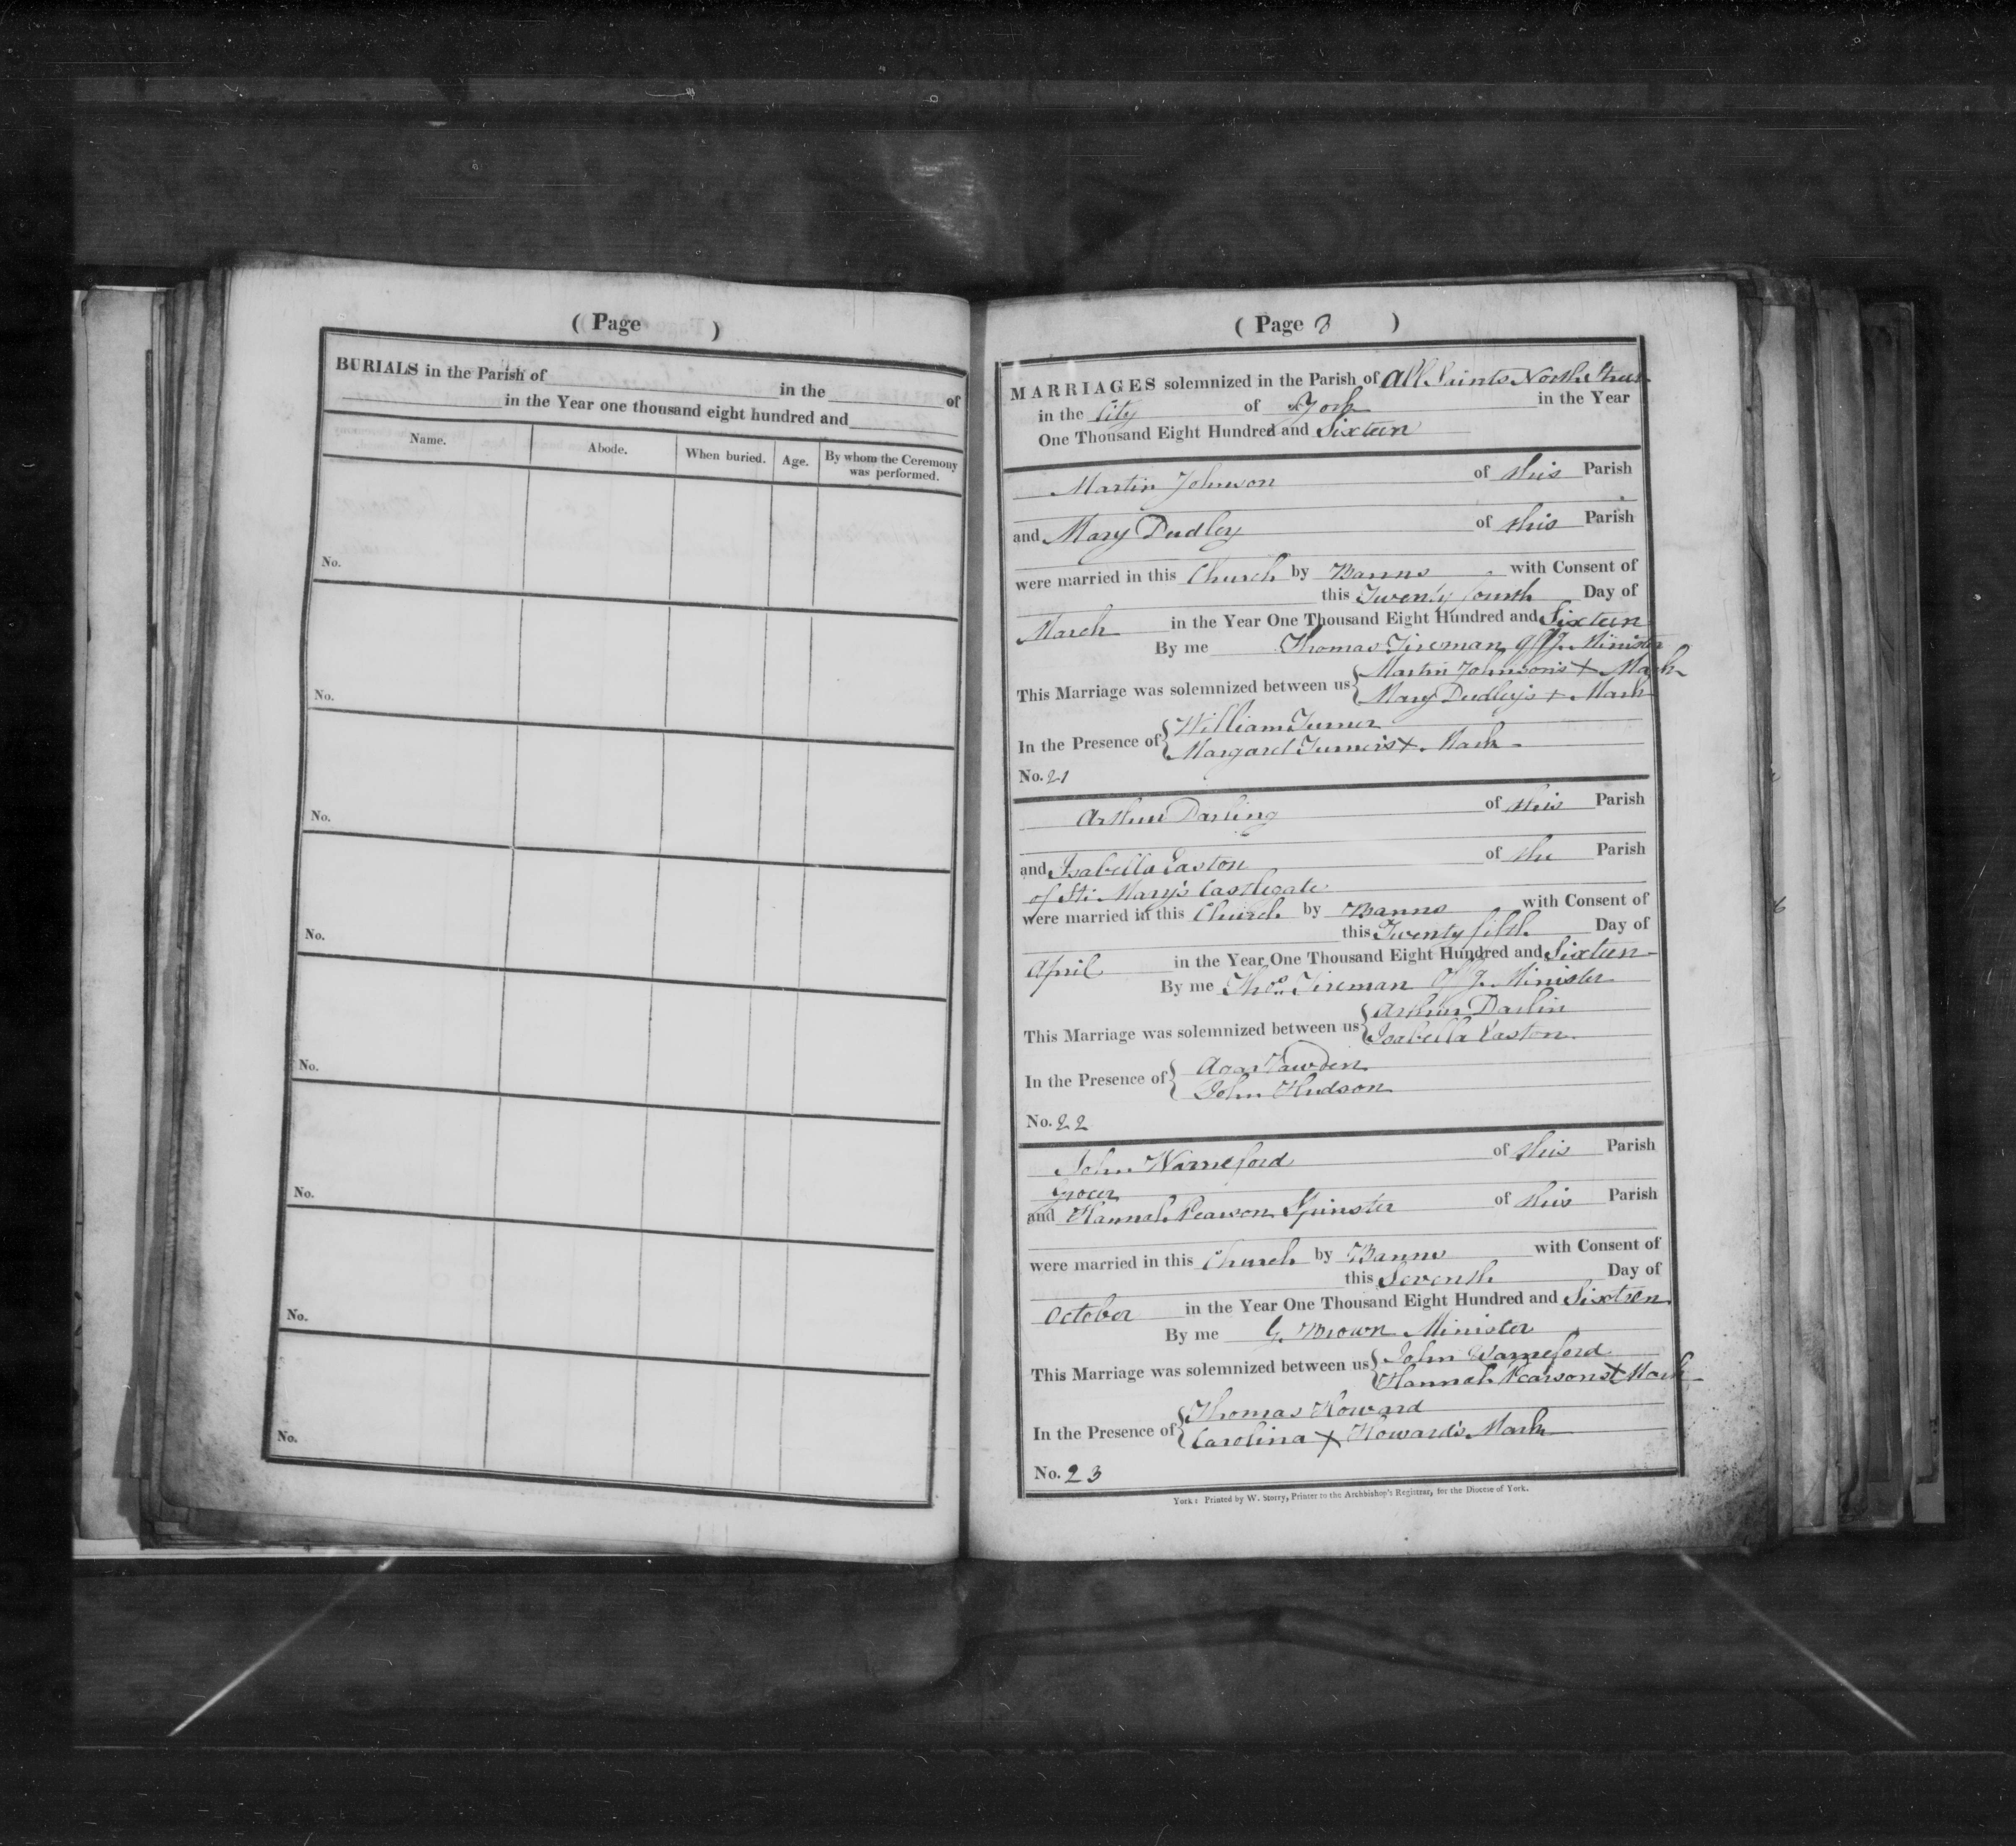 ( Page )
BURIALS in the Parish of in the of
in the Year one thousand eight hundred and
Name. Abode. When buried. Age. By whom the Ceremony was performed.
No.
No.
No.
No.
No.
No.
No.
No.
( Page )
MARRIAGES solemnized in the Parish of All Saints North Street
in the City of York in the Year
One Thousand Eight Hundred and Sixteen
Martin Johnson of this Parish
and Mary Dudley of this Parish
were married in this Church by Banns with Consent of
this Twenty fourth Day of
March in the Year One Thousand Eight Hundred and Sixteen
By me Thomas Fireman Offg. Minister
This Marriage was solemnized between us { Martin Johnson's X Mark
Mary Dudley's + Mark
In the Presence of { William Turner
Margaret Turner's X Mark
No. 21
Arthur Darling of this Parish
and Isabella Easton of the Parish
of St. Mary's Castlegate
were married in this Church by Banns with Consent of
this Twenty fifth Day of
April in the Year One Thousand Eight Hundred and Sixteen
By me Thos. Fireman Offg. Minister
This Marriage was solemnized between us { Arthur Darlin
Isabella Easton
In the Presence of { Hawden
John Hudson
No. 22
John Warneford of this Parish
Grocer
and Hannah Pearson Spinster of this Parish
were married in this Church by Banns with Consent of
this Seventh Day of
October in the Year One Thousand Eight Hundred and Sixteen
By me G. Brown Minister
This Marriage was solemnized between us { John Warneford
Hannah Pearsons X Mark
In the Presence of { Thomas Howard
Carolina X Howard's Mark
No. 23
York: Printed by W. Storry, Printer to the Archbishop's Registrar, for the Diocese of York.